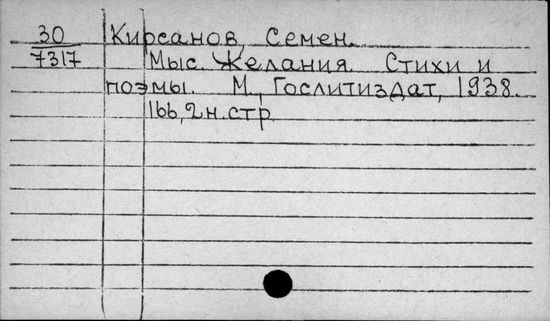 30 Кирсанов, Семен.
7317 Мыс Желания. Стихи и
поэмы. М., Гослитиздат, 1938.
166, 2 н. стр.